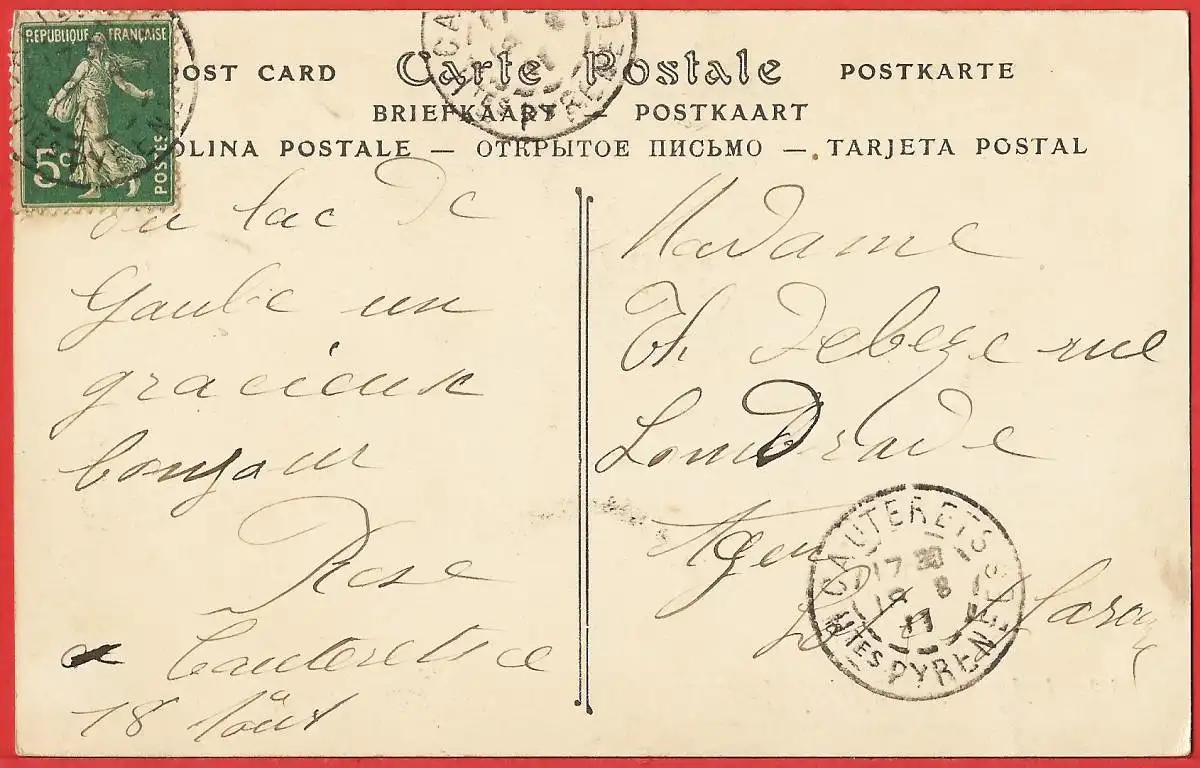 REPUBLIQUE FRANÇAISE
5c
POSTES
POST CARD Carte Postale POSTKARTE
BRIEFKAART – POSTKAART
OLINA POSTALE — ОТКРЫТОЕ ПИСЬМО — TARJETA POSTAL
Du lac de
Gaube un
gracieux
bonjour
Rose
Cauterets ce
18 Août
Madame
Th. Debeze rue
Lomdrade
Agen
Lot
CAUTERETS
17 30
19 8
11
HTES PYRENEES